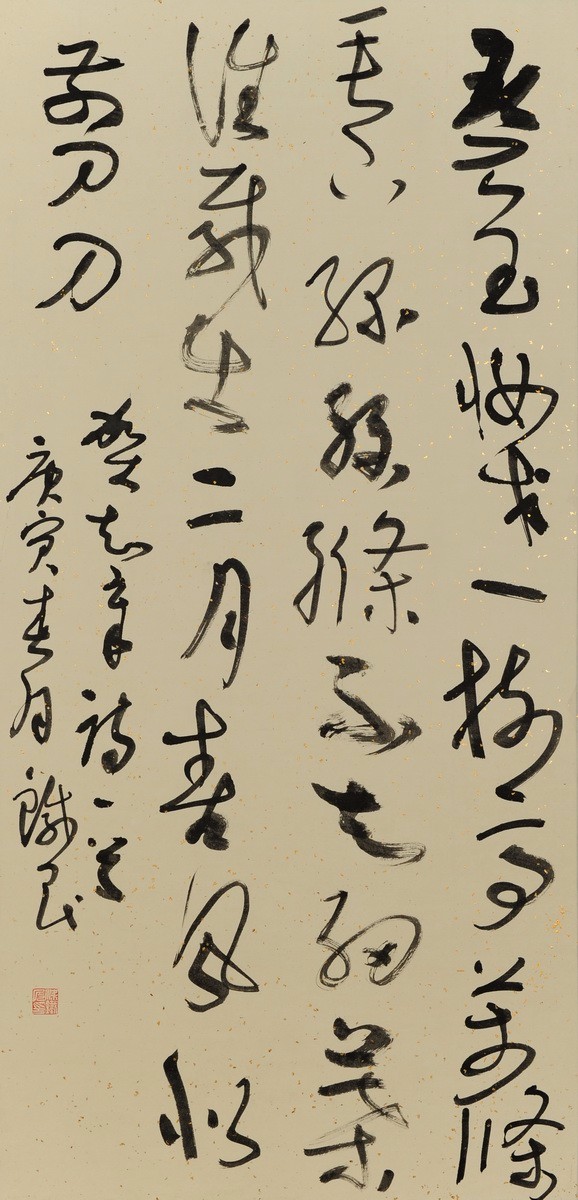 碧玉妝成一樹高萬條
垂下綠絲絛不知細葉
誰裁出二月春風似
剪刀
賀知章詩一首
庚寅春月